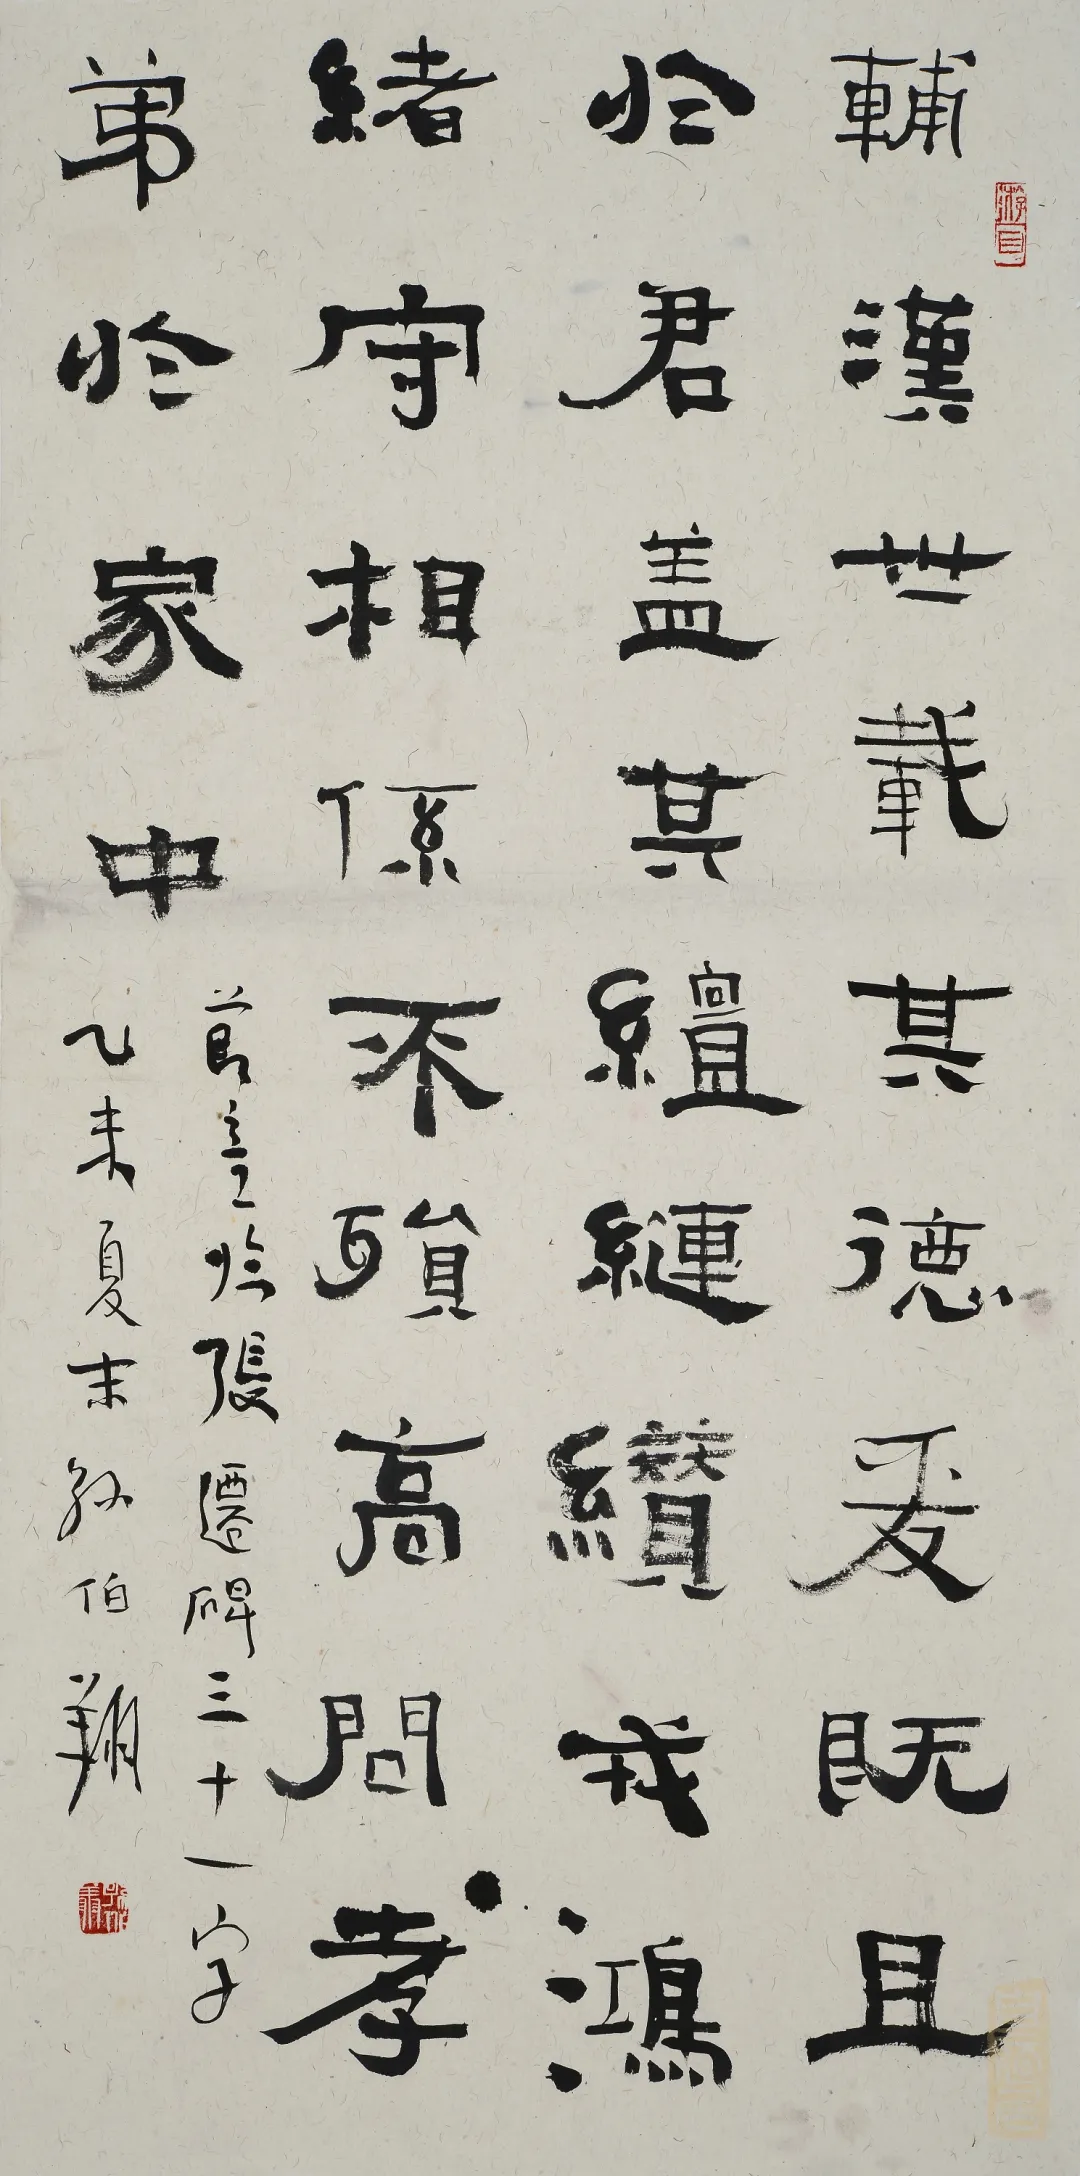 輔漢世載其德爰既且
於君盖其繵縺纘戎鴻
緒守相係不殞高問孝
弟於家中
節意臨張遷碑三十一字
乙未夏末孫伯翔
游目